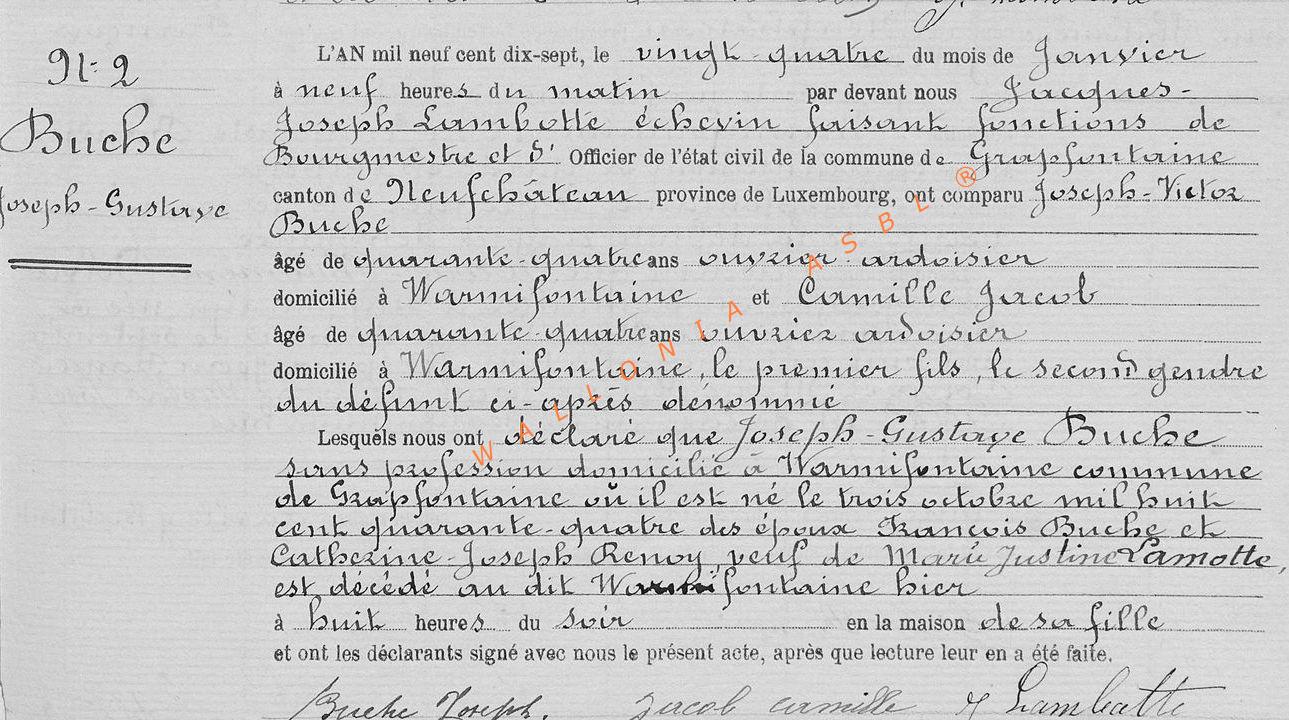 N° 2
Buche
Joseph-Gustave
L'AN mil neuf cent dix-sept, le vingt-quatre du mois de Janvier
à neuf heures du matin par devant nous Jacques-
Joseph Lambotte échevin faisant fonctions de
Bourgmestre et d' Officier de l'état civil de la commune de Grapfontaine
canton de Neufchâteau province de Luxembourg, ont comparu Joseph-Victor
Buche
âgé de quarante-quatre ans ouvrier ardoisier
domicilié à Warmifontaine et Camille Jacob
âgé de quarante-quatre ans ouvrier ardoisier
domicilié à Warmifontaine, le premier fils, le second gendre
du défunt ci-après dénommé
Lesquels nous ont déclaré que Joseph-Gustave Buche
sans profession domicilié à Warmifontaine commune
de Grapfontaine où il est né le trois octobre mil huit
cent quarante-quatre des époux François Buche et
Catherine-Joseph Renoy, veuf de Marie Justine Lamotte,
est décédé au dit Warmifontaine hier
à huit heures du soir en la maison de sa fille
et ont les déclarants signé avec nous le présent acte, après que lecture leur en a été faite.
Buche Joseph. Jacob Camille J Lambotte
WALLONIA ASBL ®